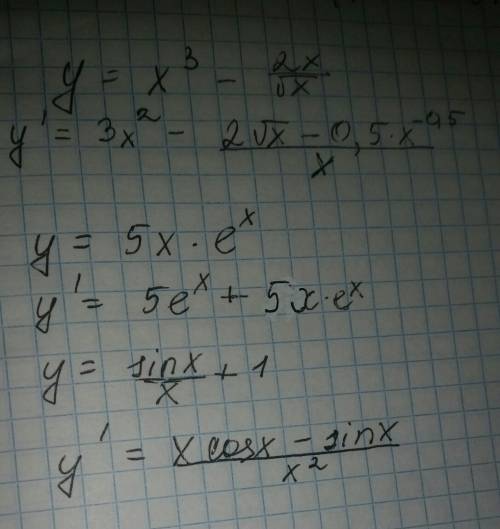 y = x³ - 2x/√x
y' = 3x² - (2√x - 0,5·x^-0,5)/x
y = 5x · eˣ
y' = 5eˣ + 5x·eˣ
y = sinx/x + 1
y' = (x cosx - sinx)/x²